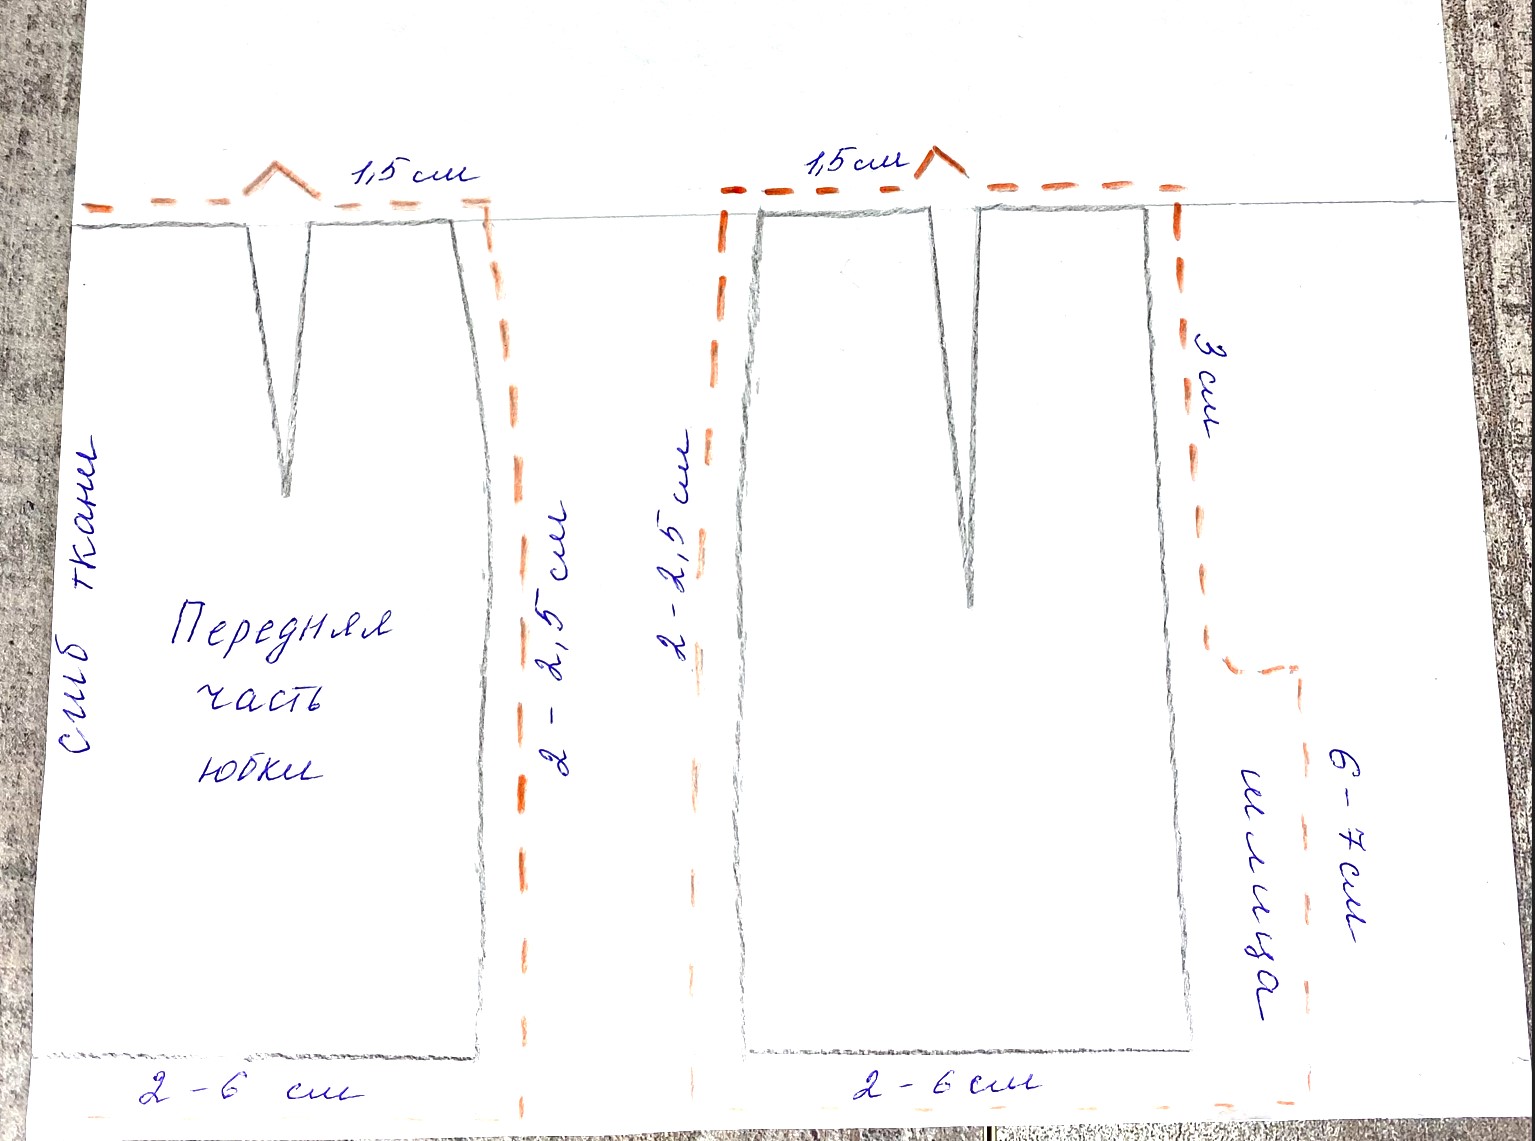 1,5 см
1,5 см
сгиб ткани
Передняя
часть
юбки
2 - 2,5 см
2 - 2,5 см
3 см
шлица
6 - 7 см
2 - 6 см
2 - 6 см